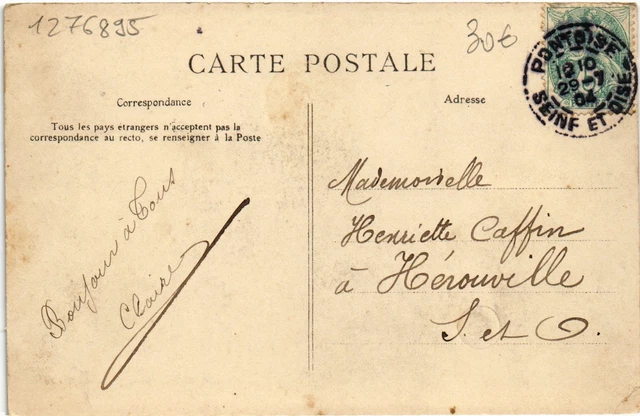 1276895
30€
CARTE POSTALE
Correspondance
Tous les pays étrangers n'acceptent pas la
correspondance au recto, se renseigner à la Poste
Bonjour à tous
Claire
Adresse
PONTOISE
29 - 7
04
SEINE ET OISE
Mademoiselle
Henriette Caffin
à Hérouville
S. et O.